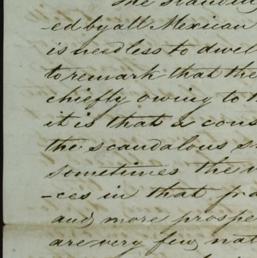 The
-ed by all Mexican
is needless to dwel
to remark that the
chiefly owing to
it is that a cons
the scandalous s
sometimes the
-ces in that p
and more prospe
are very few nat